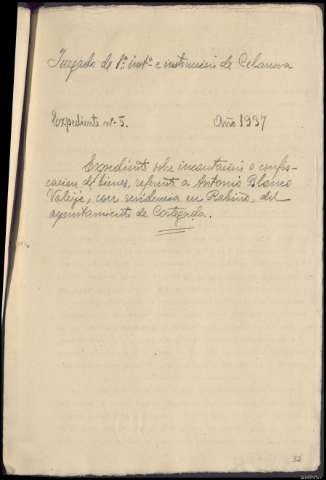 Juzgado de 1ª instª e instrucción de Celanova
Expediente nº 5. Año 1937
Expediente sobre incautación o confis-
cación de bienes, referente a Antonio Blanco
Valeije, con residencia en Rabiño, del
ayuntamiento de Cortegada.
32